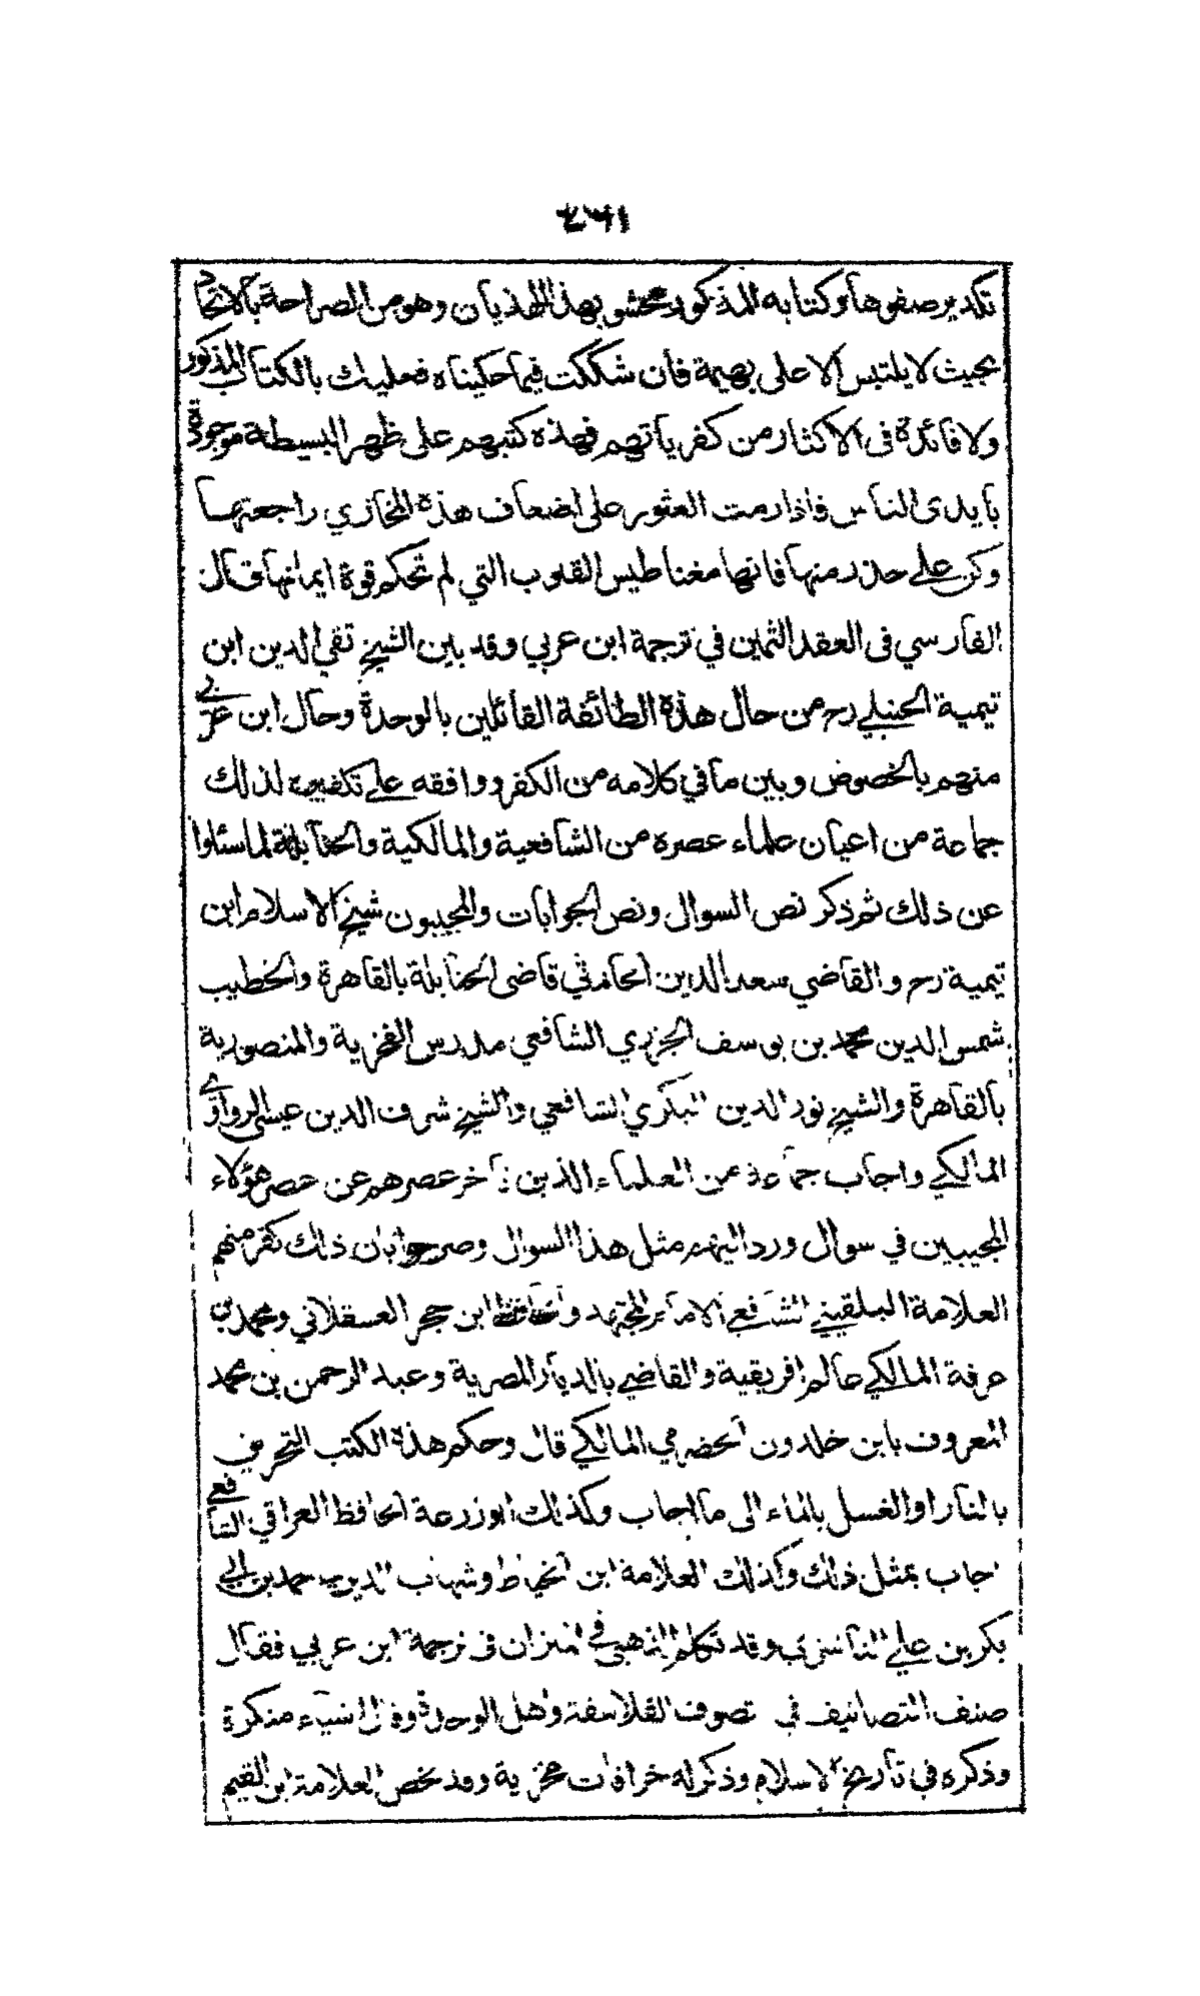 ٤٦١
تكدير صفوها وكتابه المذكور محشو بهذا الهذيان وهو من الصراحة بالاتحاد
بحيث لا يلتبس الا على بهيمة فان شككت فيما حكيناه فعليك بالكتاب المذكور
ولا فائدة فى الاكثار من كفرياتهم فهذه كتبهم على ظهر البسيطة موجودة
بايدى الناس فاذا رمت العثور على اضعاف هذه المخازي راجعتها
وكن على حذر منها فانها مغناطيس القلوب التي لم تحكم قوة ايمانها قال
الفارسي فى العقد الثمين في ترجمة ابن عربي وقد بين الشيخ تقي الدين ابن
تيمية الحنبلي رح من حال هذه الطائفة القائلين بالوحدة وحال ابن عربي
منهم بالخصوص وبين ما في كلامه من الكفر ووافقه على تكفيره لذلك
جماعة من اعيان علماء عصره من الشافعية والمالكية والحنابلة لما سئلوا
عن ذلك ثم ذكر نص السوال ونص الجوابات والمجيبون شيخ الاسلام ابن
تيمية رح والقاضي سعد الدين الحارثي قاضى الحنابلة بالقاهرة والخطيب
شمس الدين محمد بن يوسف الجزري الشافعي مدرس الفخرية والمنصورية
بالقاهرة والشيخ نور الدين البكري الشافعي والشيخ شرف الدين عيسى الزواوي
المالكي واجاب جماعة من العلماء الذين تأخر عصرهم عن عصر هؤلاء
المجيبين في سوال ورد اليهم مثل هذا السوال وصرحوا بان ذلك كفر منهم
العلامة البلقيني الشافعي الامام المجتهد والحافظ ابن حجر العسقلاني ومحمد بن
عرفة المالكي عالم افريقية والقاضي بالديار المصرية وعبد الرحمن بن محمد
المعروف بابن خلدون الحضرمي المالكي قال وحكم هذه الكتب التحريق
بالنار او الغسل بالماء الى ما اجاب وكذلك ابو زرعة الحافظ العراقي الشافعي
اجاب بمثل ذلك وكذلك العلامة ابن الخياط وشهاب الدين احمد بن ابي
بكر بن علي الناشري وقد تكلم الذهبي في الميزان فى ترجمة ابن عربي فقال
صنف التصانيف في تصوف الفلاسفة واهل الوحدة وقال اشياء منكرة
وذكره في تاريخ الاسلام وذكر له خرافات مخزية وقد لخص العلامة ابن القيم